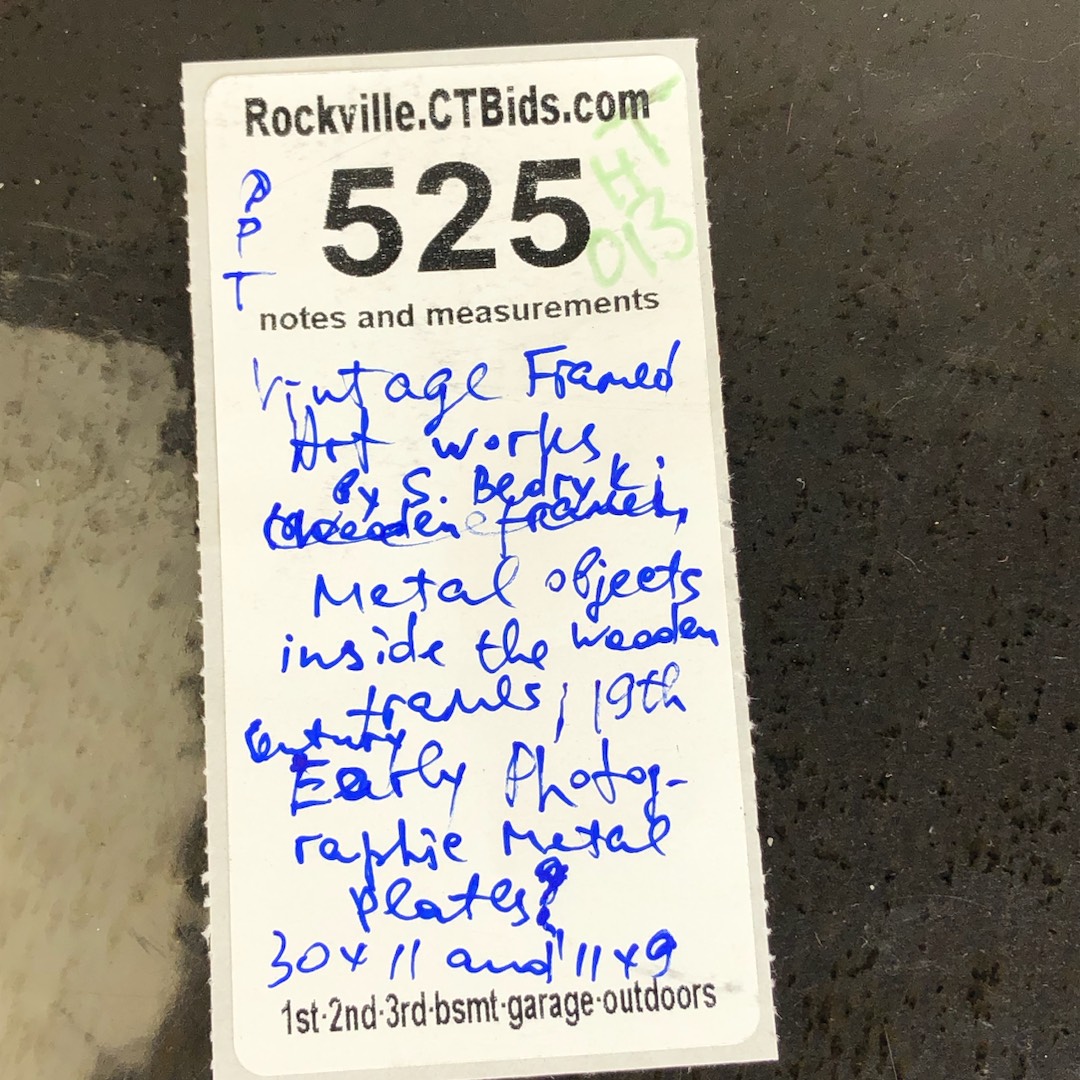 Rockville.CTBids.com
525
T
HI
013
P
P
T
notes and measurements
Vintage Framed
Art works
By S. Bedryk;
wooden frames,
Metal objects
inside the wooden
frames; 19th
Century
Early Photog-
raphic Metal
plates?
30x11 and 11x9
1st·2nd·3rd·bsmt·garage·outdoors